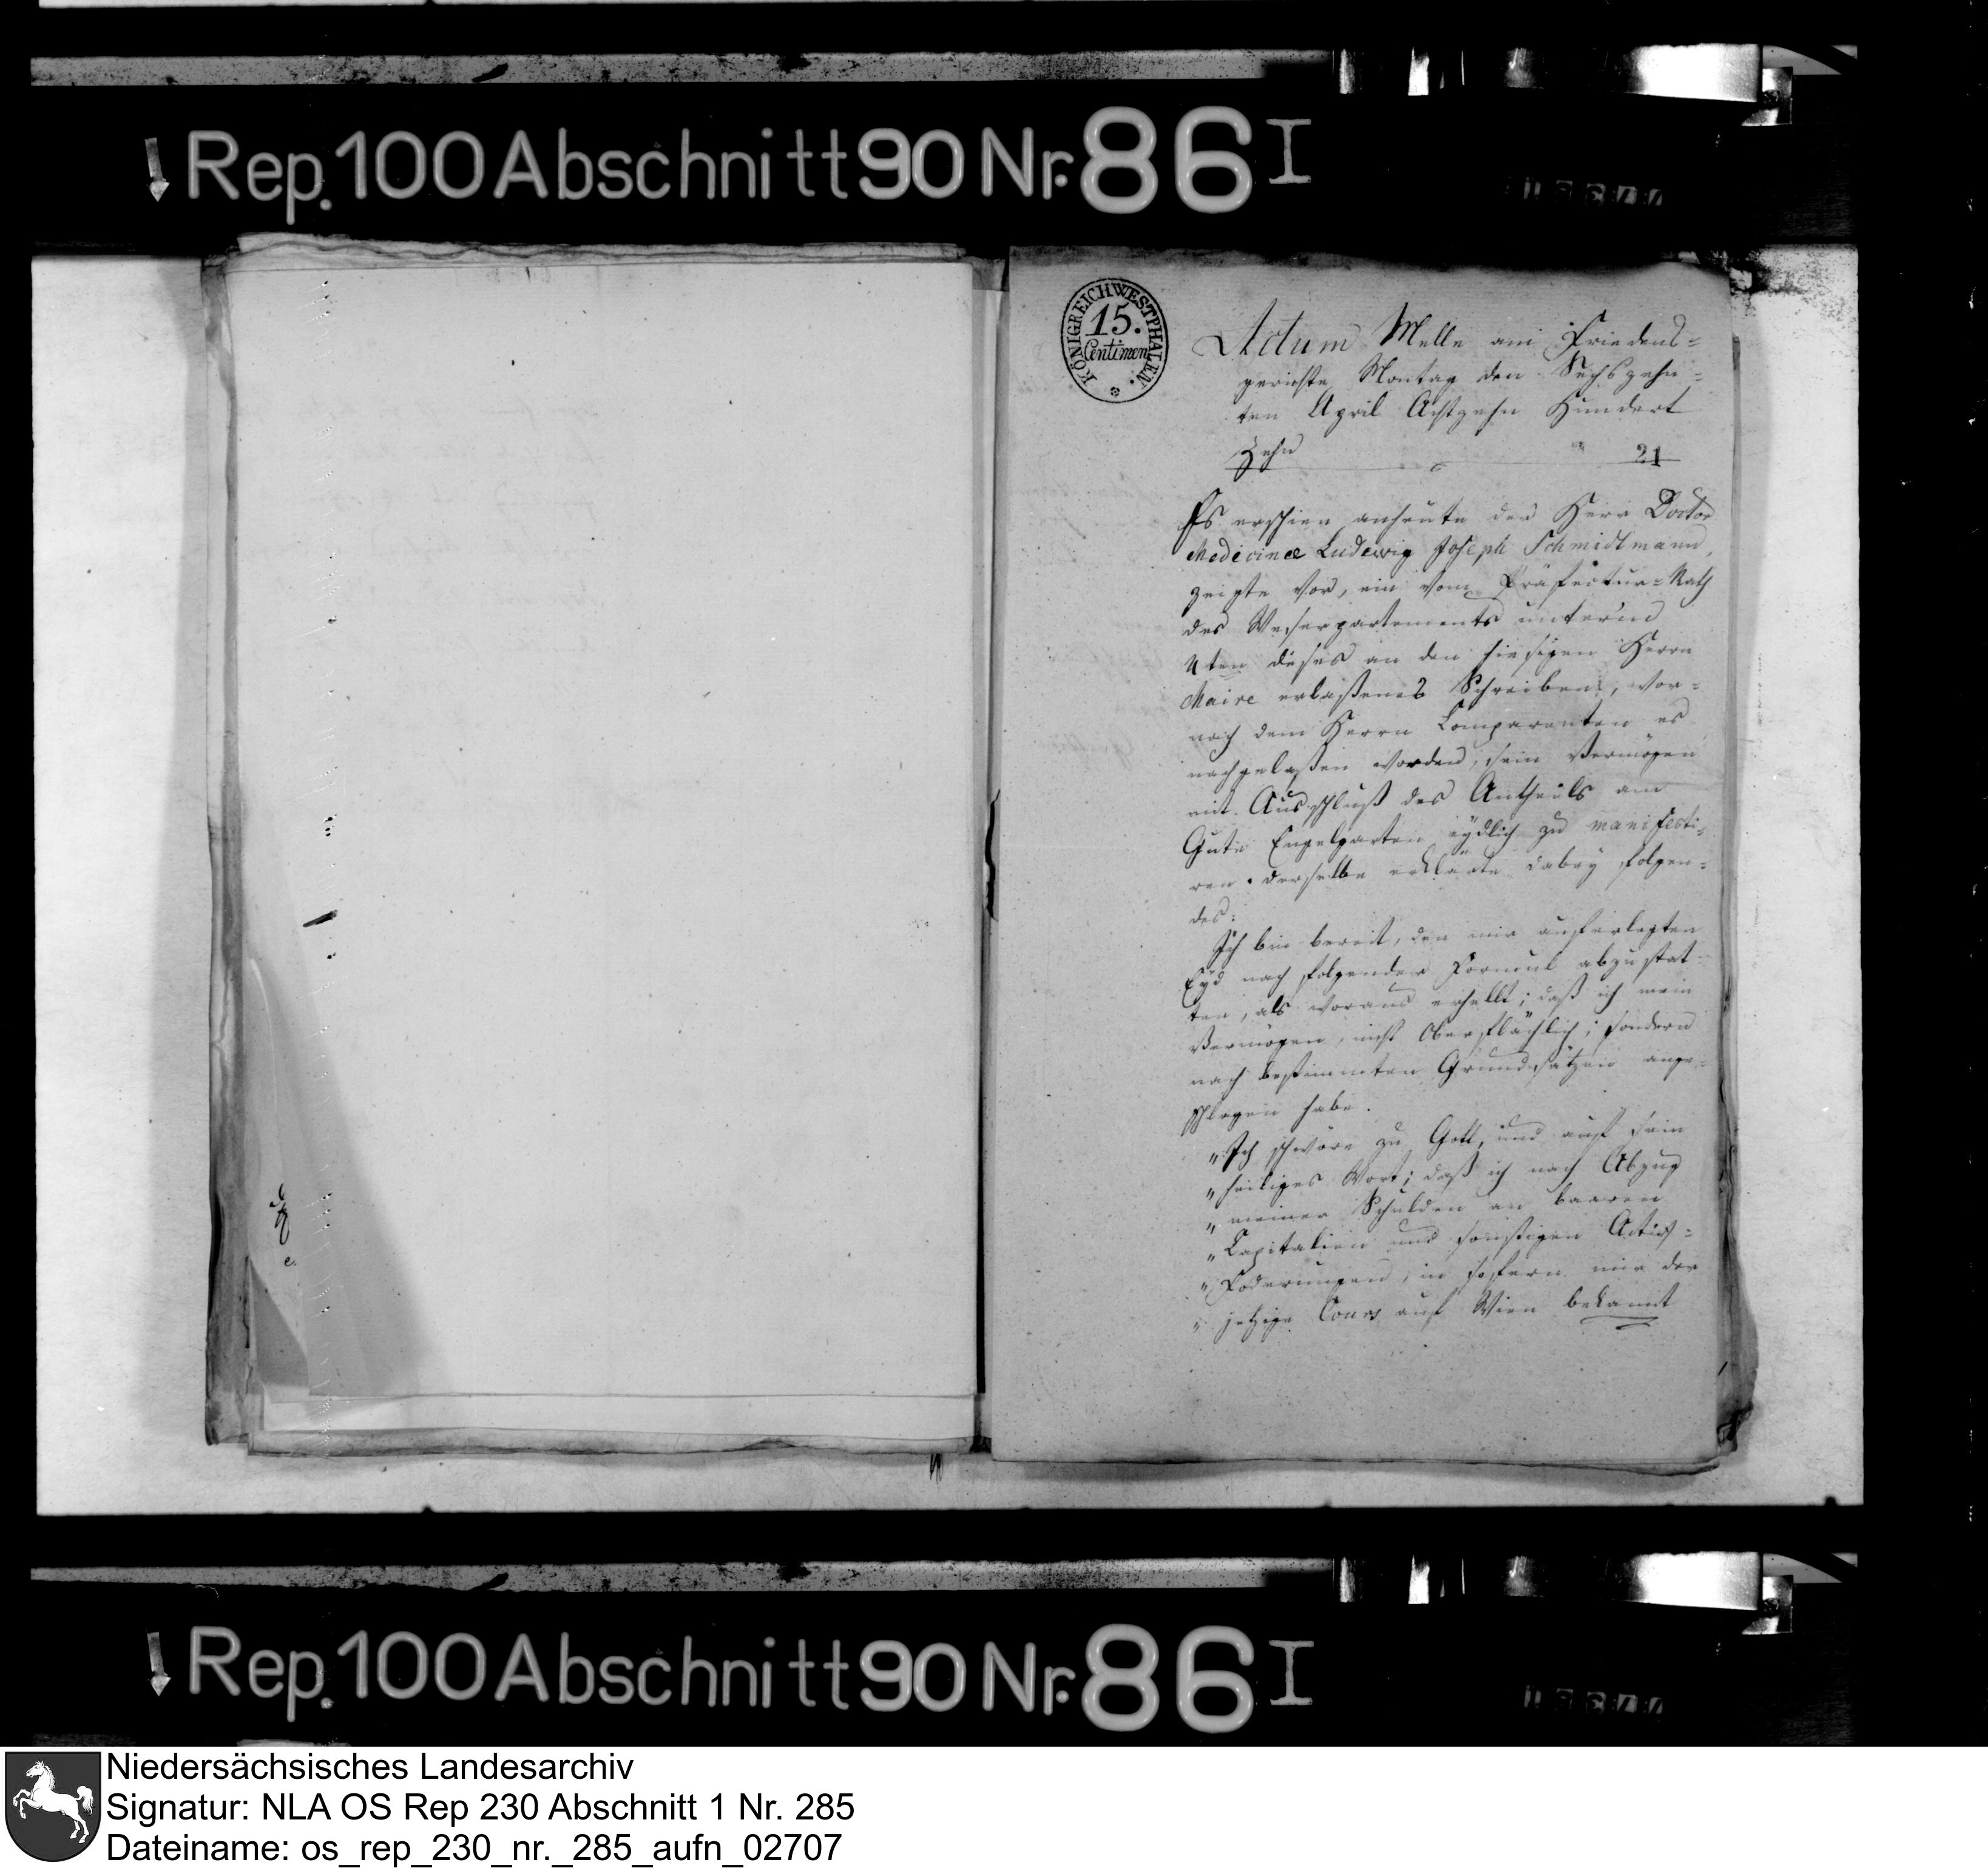 Rep. 100 Abschnitt 90 Nr. 86 I
KÖNIGREICH WESTPHALEN.
15.
Centimen
Actum Melle am Friedens=
gerichte Montag den Sechszehn=
ten April Achtzehn Hundert
Zehn
21
Es erschien anheute der Herr Doctor
Medicinae Ludewig Joseph Schmidtmann,
zeigte vor, ein vom Präfectur=Rath
des Weserpartements unterm
4ten dieses an den hiesigen Herrn
Maire erlaßenes Schreiben, wor=
nach dem Herrn Comparenten es
nachgelaßen worden, sein Vermögen
mit Ausschluß des Antheils am
Gute Engelgarten eydlich zu manifesti=
ren. derselbe erklärte dabey folgen=
des:
Ich bin bereit, den mir auferlegten
Eyd nach folgender Formul abzustat=
ten, als woraus erhellt; daß ich mein
Vermögen, nicht Oberflächlich; sondern
nach bestimmten Grundsätzen ange=
schlagen habe.
"Ich schwöre zu Gott, und auf sein
"heiliges Wort; daß ich nach Abzug
"meiner Schulden an baaren
"Capitalien und sonstigen Activ=
"Foderungen, in sofern mir der
"jetzige Cours auf Wien bekannt
Rep. 100 Abschnitt 90 Nr. 86 I
Niedersächsisches Landesarchiv
Signatur: NLA OS Rep 230 Abschnitt 1 Nr. 285
Dateiname: os_rep_230_nr._285_aufn_02707